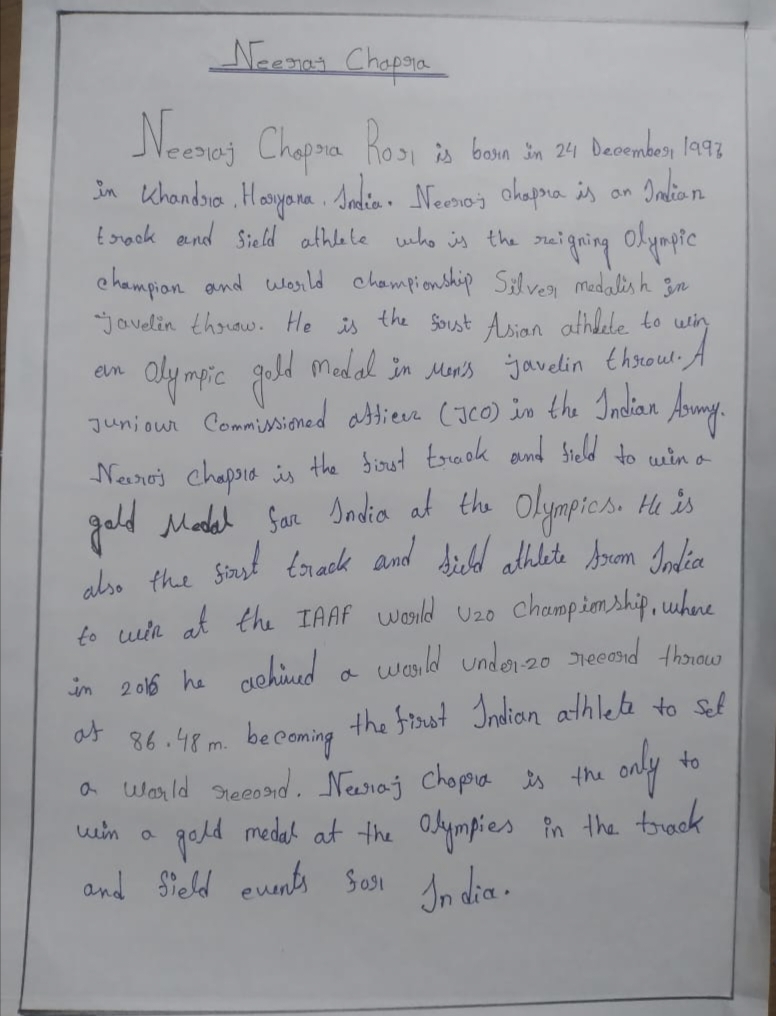 Neeraj Chopra
Neeraj Chopra Ror is born in 24 December 1997
in Khandra, Haryana, India. Neeraj chopra is an Indian
track and field athlete who is the reigning Olympic
champian and world championship Silver medalish in
javelin throw. He is the forst Asian athlete to win
an Olympic gold medal in Men's javelin throw. A
Juniour Commissioned officer (JCO) in the Indian Army.
Neeraj chopra is the first track and field to win a
gold Medal for India at the Olympics. He is
also the first track and field athlete from India
to win at the IAAF World U20 Championship, where
in 2016 he achived a world under-20 record throw
of 86.48 m. becoming the first Indian athlete to set
a world record. Neeraj Chopra is the only to
win a gold medal at the Olympics in the track
and field events for India.